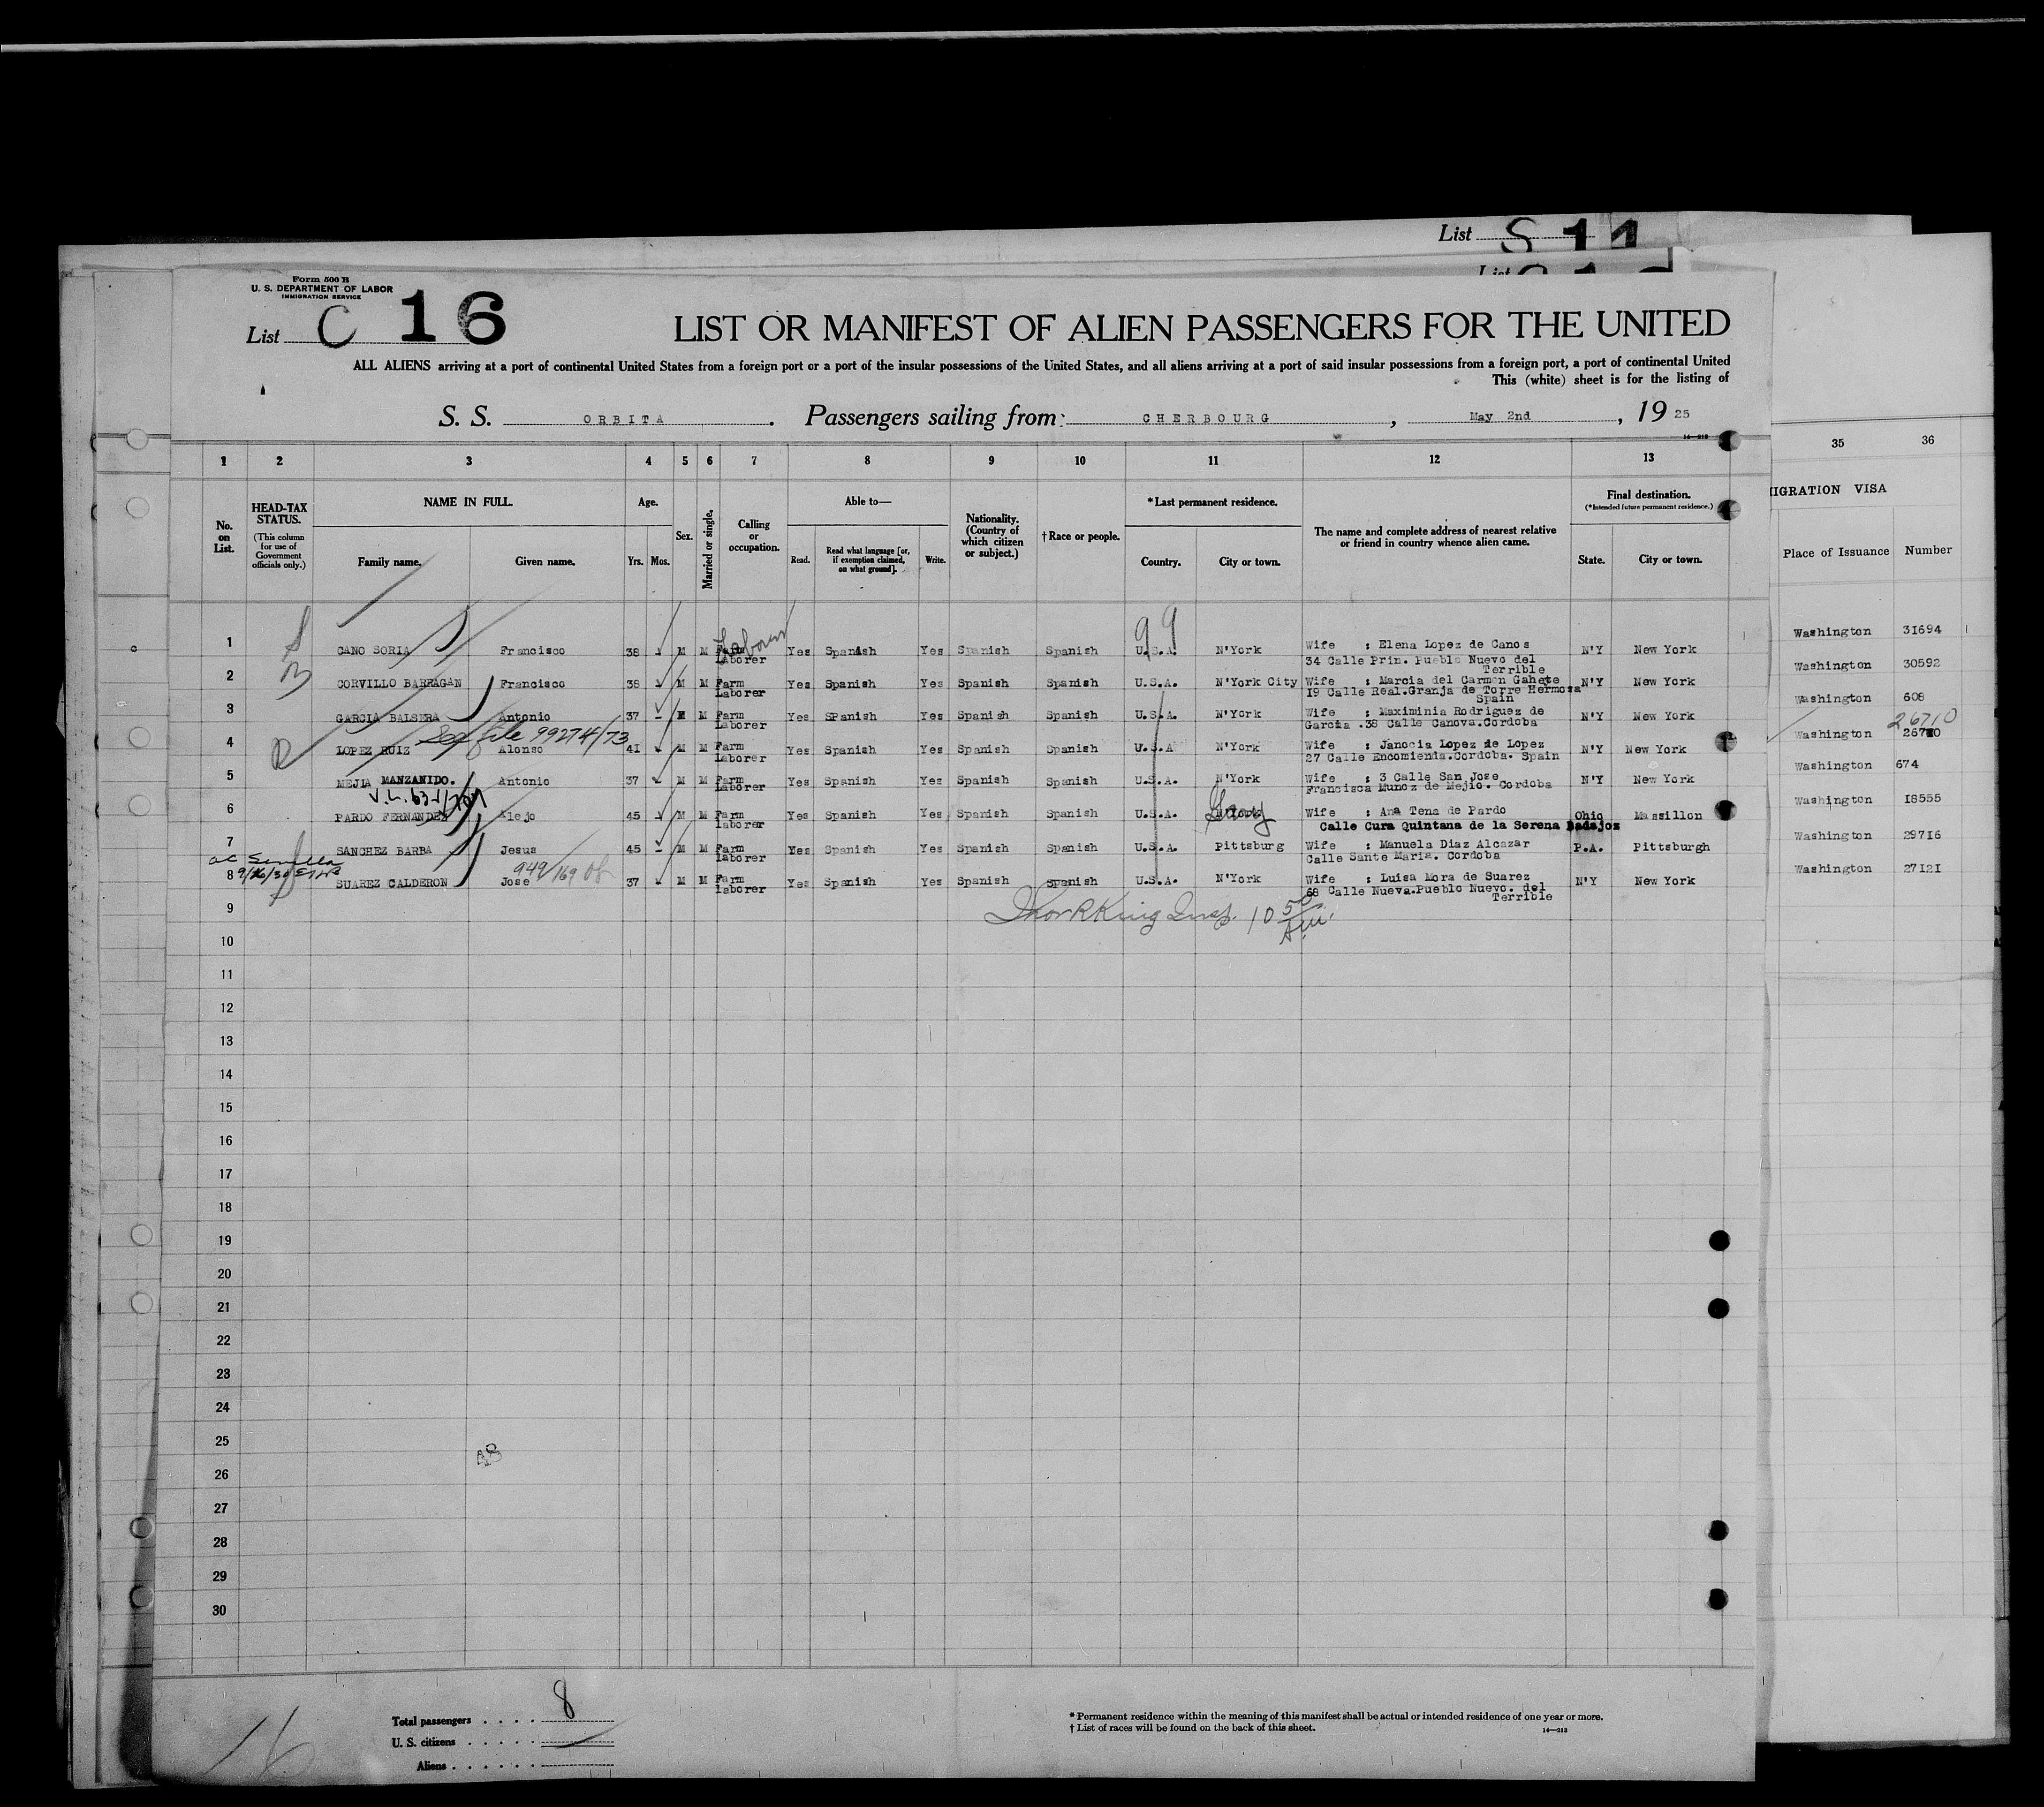 List S 11
List
Form 500 B
U. S. DEPARTMENT OF LABOR
IMMIGRATION SERVICE
List C 16
LIST OR MANIFEST OF ALIEN PASSENGERS FOR THE UNITED
ALL ALIENS arriving at a port of continental United States from a foreign port or a port of the insular possessions of the United States, and all aliens arriving at a port of said insular possessions from a foreign port, a port of continental United
This (white) sheet is for the listing of
S. S. ORBITA. Passengers sailing from: CHERBOURG, May 2nd, 19 25
14—213
1 2 3 4 5 6 7 8 9 10 11 12 13 35 36
No. on List.
HEAD-TAX STATUS.
(This column for use of Government officials only.)
NAME IN FULL.
Family name. Given name.
Age.
Yrs. Mos.
Sex.
Married or single.
Calling or occupation.
Able to—
Read. Read what language [or, if exemption claimed, on what ground]. Write.
Nationality. (Country of which citizen or subject.)
†Race or people.
*Last permanent residence.
Country. City or town.
The name and complete address of nearest relative or friend in country whence alien came.
Final destination.
(*Intended future permanent residence.)
State. City or town.
IGRATION VISA
Place of Issuance Number
99
Labourer
1 CANO SORIA Francisco 38 - M M Farm Laborer Yes Spanish Yes Spanish Spanish U.S.A. N'York Wife : Elena Lopez de Canos N'Y New York Washington 31694
34 Calle Prin. Pueblo Nuevo del Terrible
2 CORVILLO BARRAGAN Francisco 38 M M Farm Laborer Yes Spanish Yes Spanish Spanish U.S.A. N'York City Wife : Marcia del Carmen Gahete N'Y New York Washington 30592
19 Calle Real.Granja de Torre Hermosa Spain
3 GARCIA BALSERA Antonio 37 - M M Farm Laborer Yes SPanish Yes Spanish Spanish U.S.A. N'York Wife : Maximinia Rodriguez de N'Y New York Washington 608
Garcia .38 Calle Canova.Cordoba
See file 99274/73
26710
4 LOPEZ RUIZ Alonso 41 M M Farm Laborer Yes Spanish Yes Spanish Spanish U.S.A N'York Wife : Janocia Lopez de Lopez N'Y New York Washington
27 Calle Encomienda.Cordoba. Spain
5 MEJIA MANZANIDO. Antonio 37 M M Farm Laborer Yes Spanish Yes Spanish Spanish U.S.A. N'York Wife : 3 Calle San Jose N'Y New York Washington 674
Francisca Munoz de Mejio. Cordoba
6 PARDO FERNANDEZ Alejo 45 M M Farm laborer Yes Spanish Yes Spanish Spanish U.S.A. Gary Wife : Ana Tena de Pardo Ohio Massillon Washington 18555
Calle Cura Quintana de la Serena Badajoz
7 SANCHEZ BARBA Jesus 45 - M M Farm laborer Yes Spanish Yes Spanish Spanish U.S.A. Pittsburg Wife : Manuela Diaz Alcazar P.A. Pittsburgh Washington 29716
Calle Sante Maria. Cordoba
949/169
8 SUAREZ CALDERON Jose 37 M M Farm laborer Yes Spanish Yes Spanish Spanish U.S.A. N'York Wife : Luisa Mora de Suarez N'Y New York Washington 27121
68 Calle Nueva.Pueblo Nuevo. del Terrible
9
10
11
12
13
14
15
16
17
18
19
20
21
22
23
24
25
26
27
28
29
30
Total passengers . . . . 8
U. S. citizens . . . . .
Aliens . . . . . .
16
* Permanent residence within the meaning of this manifest shall be actual or intended residence of one year or more.
† List of races will be found on the back of this sheet.
14—213